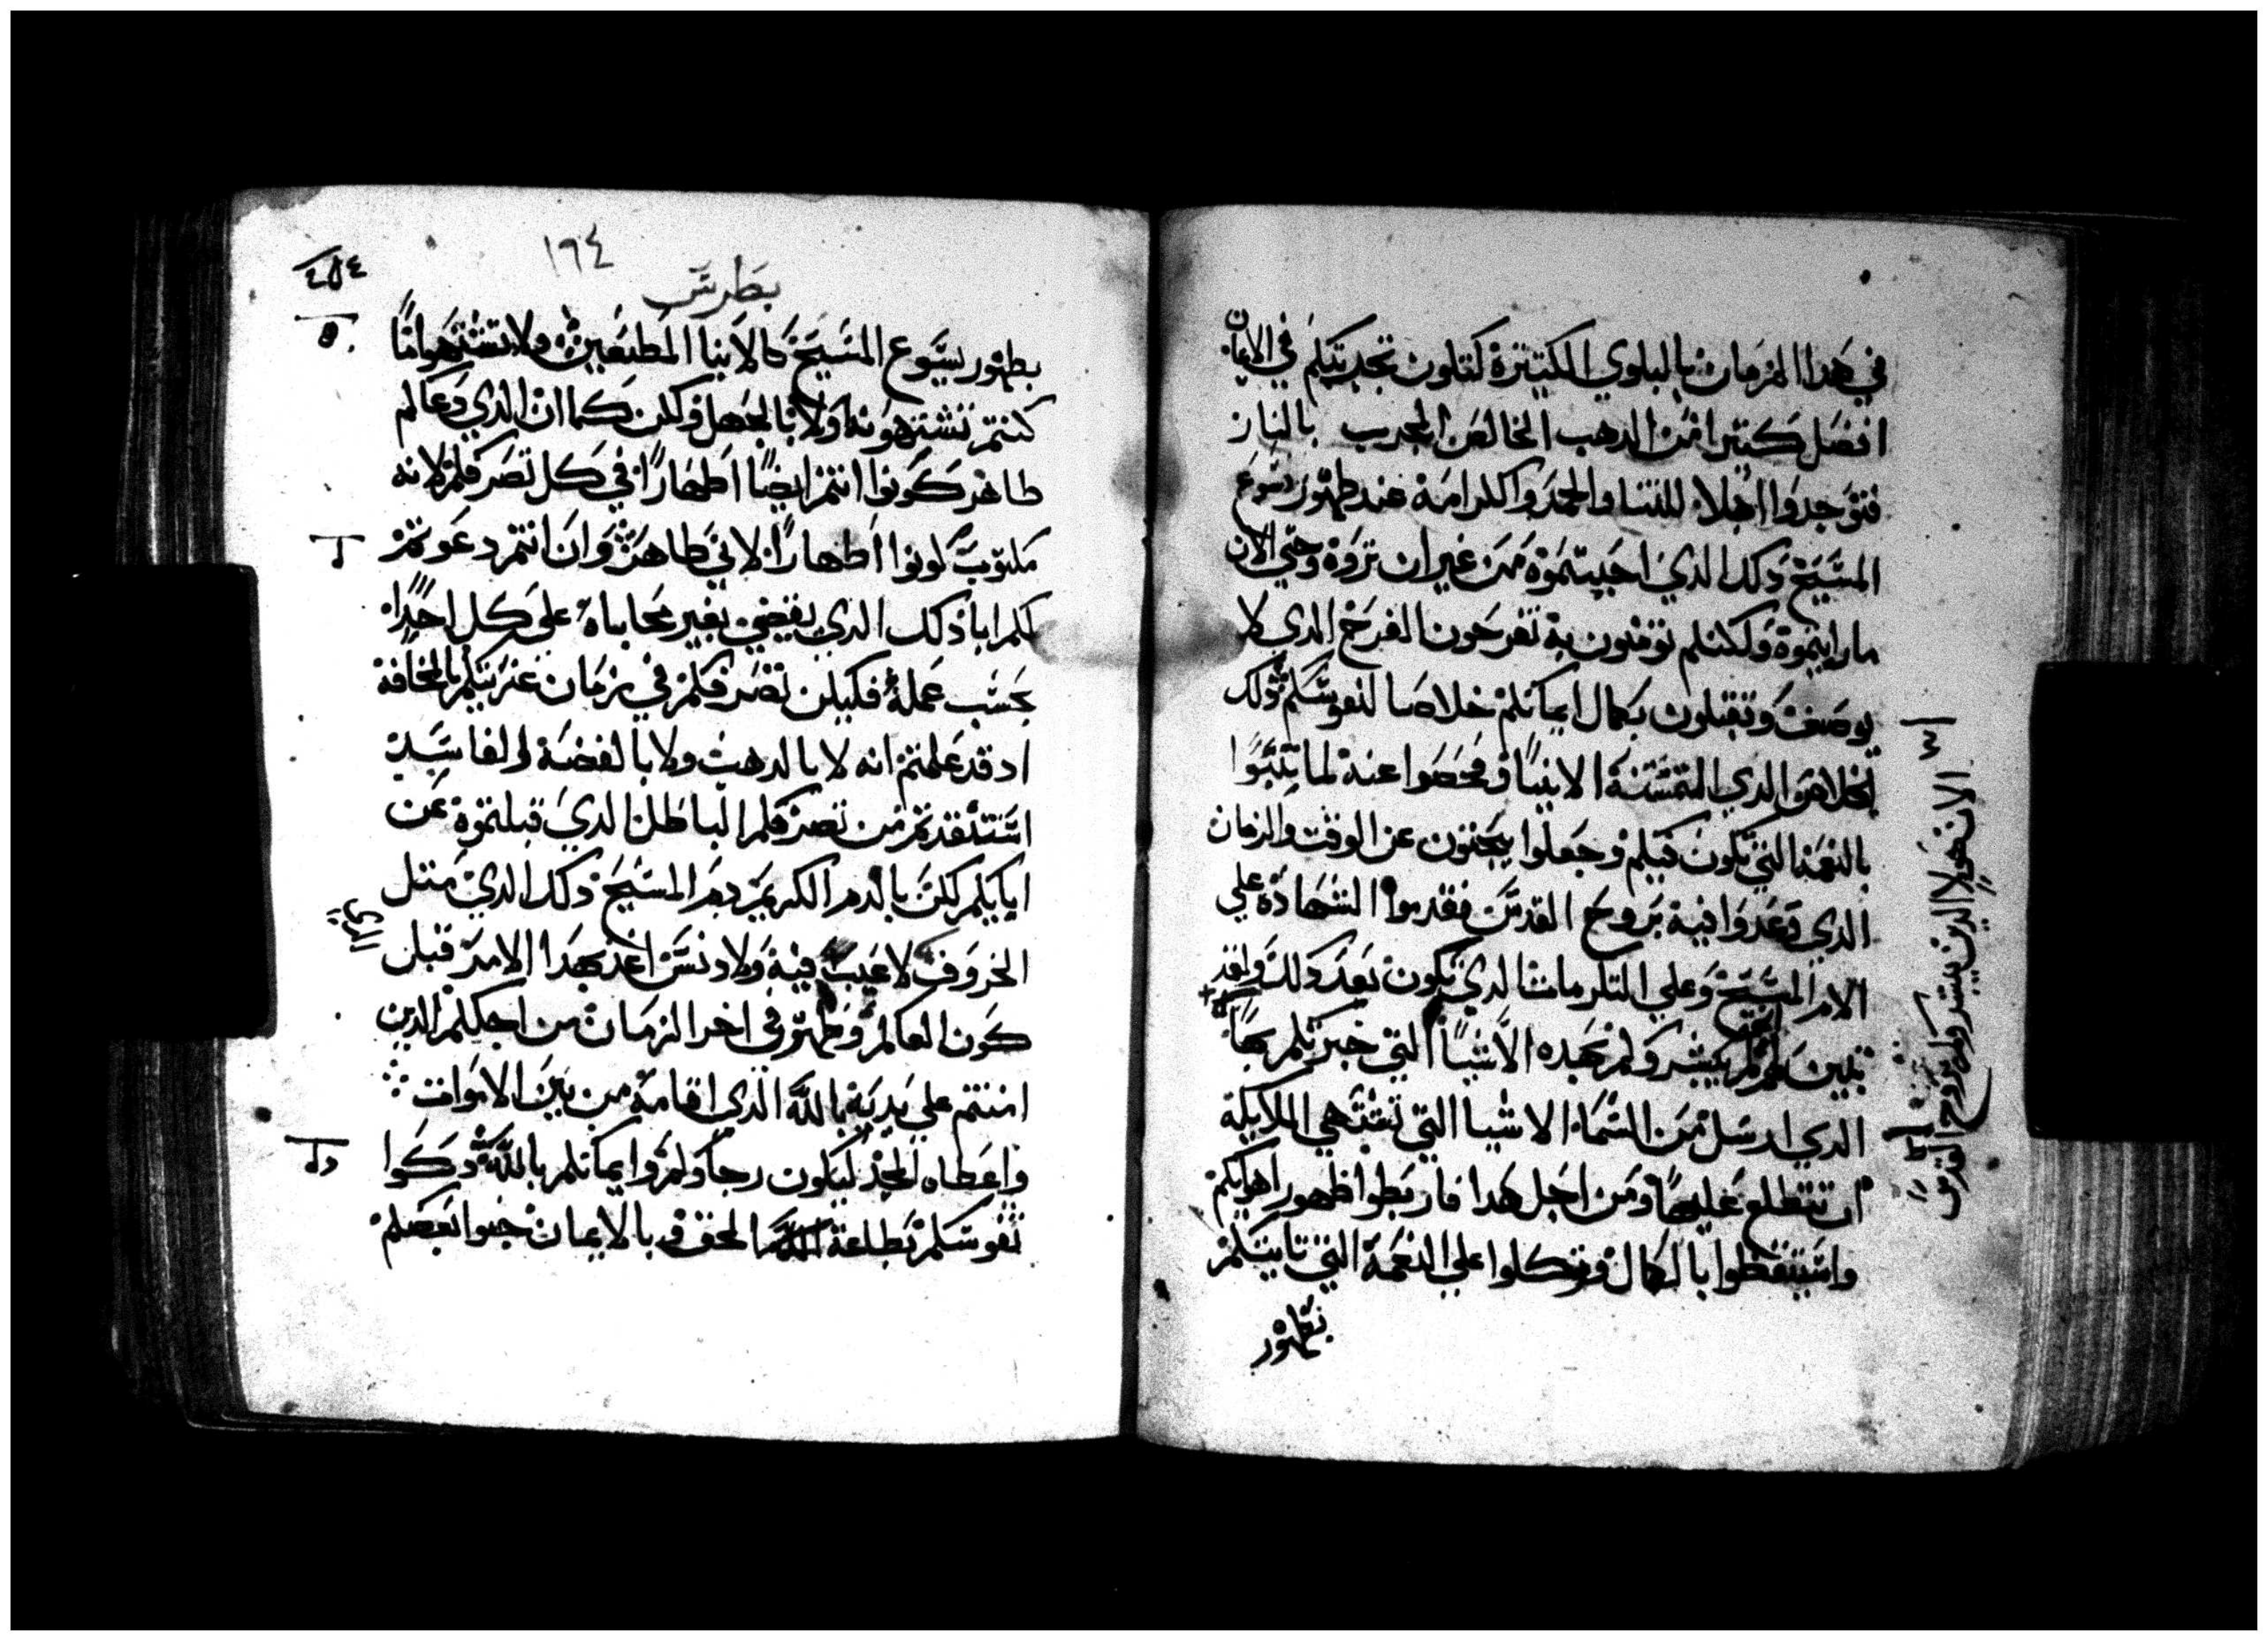 في هدا الزمان بالبلوي الكتيرة كتلون تجربتكم في الايمان
افضل كتيرا من الدهب الخالص المجرب بالنار
فتوجدوا اهلا للتنا والمجد والكرامة عند ظهور يسوع
المسيح دلك الدي احببتموه من غير ان تروه وحتي الان
ما رايتموة ولكنكم تومنون به تفرحون الفرح الدي لا
يوصف وتقبلون بكمال ايمانكم خلاصا لنفوسكم ودلك
الخلاص هو الدي التمسته الانبيا وفحصوا عنه لما تنبوا
بالنعمه التي تكون فيكم وجعلوا يبحتون عن الوقت والزمان
الدي وعدوا فيه بروح القدس فقدموا الشهادة علي
الام المسيح وعلي الكرمات الدي تكون بعد دلك ولقد
تبين لهم انهم لم يبشروكم بهده الاشيا التي خبرتكم بها
الدي ارسل من السماء الاشيا التي تشتهي الملايكة
ان تتطلع عليها ومن اجل هدا فاربطوا ظهور اهوايكم
واستيقظوا بالكمال وتوكلوا علي النعمة التي تاتيكم
بظهور
الان هولا الدين بشروكم بروح القدس
٤٥٤
١٦٤
بطرس
بظهور يسوع المسيح كالابنا المطيعين ولا تشتهوا ما
كنتم تشتهونه اولا بالجهل ولكن كما ان الدي دعاكم
طاهر كونوا انتم ايضا اطهارا في كل تصرفكم لانه
مكتوب كونوا اطهارا لاني طاهر وان انتم دعوتم
لكم ابا دلك الدي يقضي بغير محاباه علي كل احدا
بحسب عمله فليكن تصرفكم في زمان غربتكم بالمخافة
اد قد علمتم انه لا بالدهب ولا بالفضة الفاسدة
استنقدتم من تصرفكم الباطل الدي قبلتموه عن
ابايكم لكن بالدم الكريم دم المسيح دلك الدي متل
الخروف لا عيب فيه ولا دنس اعد بهدا الامر قبل
كون العالم وظهر في اخر الزمان من اجلكم الدين
امنتم علي يديه بالله الدي اقامه من بين الاموات
واعطاه المجد ليكون رجاوكم وايمانكم بالله وزكوا
نفوسكم بطاعة الحق وبالايمان حبوا بعضكم